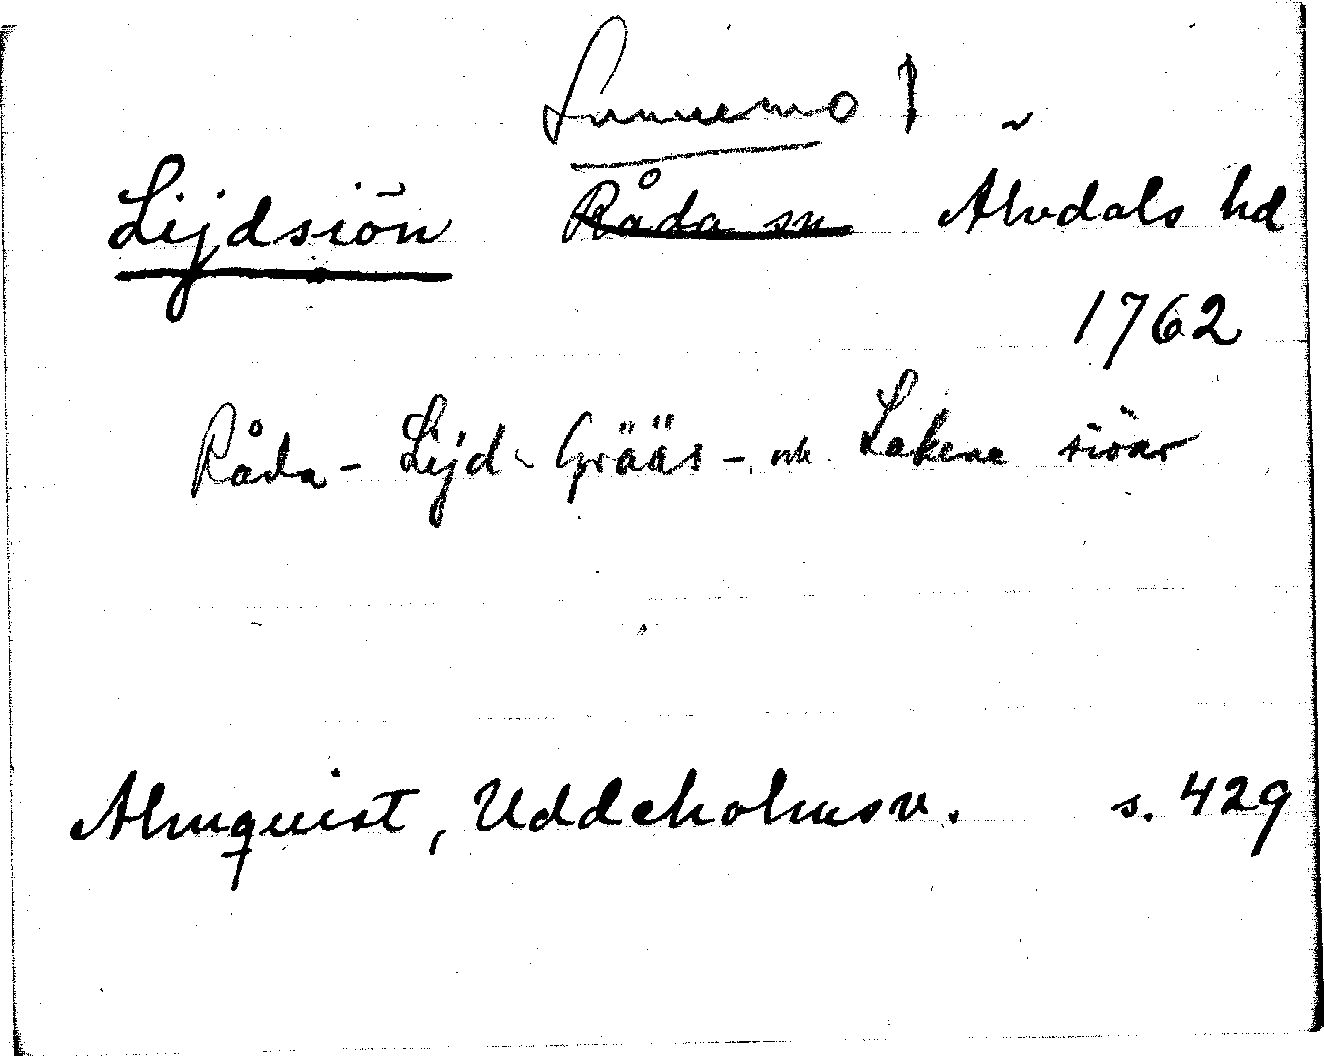 Sunnemo
Lijdsiön ~~Råda sn~~ Älvdals hd
1762
Råda - Lijd - Grääs - och Lakene siöar
Almquist, Uddeholmsv. s. 429